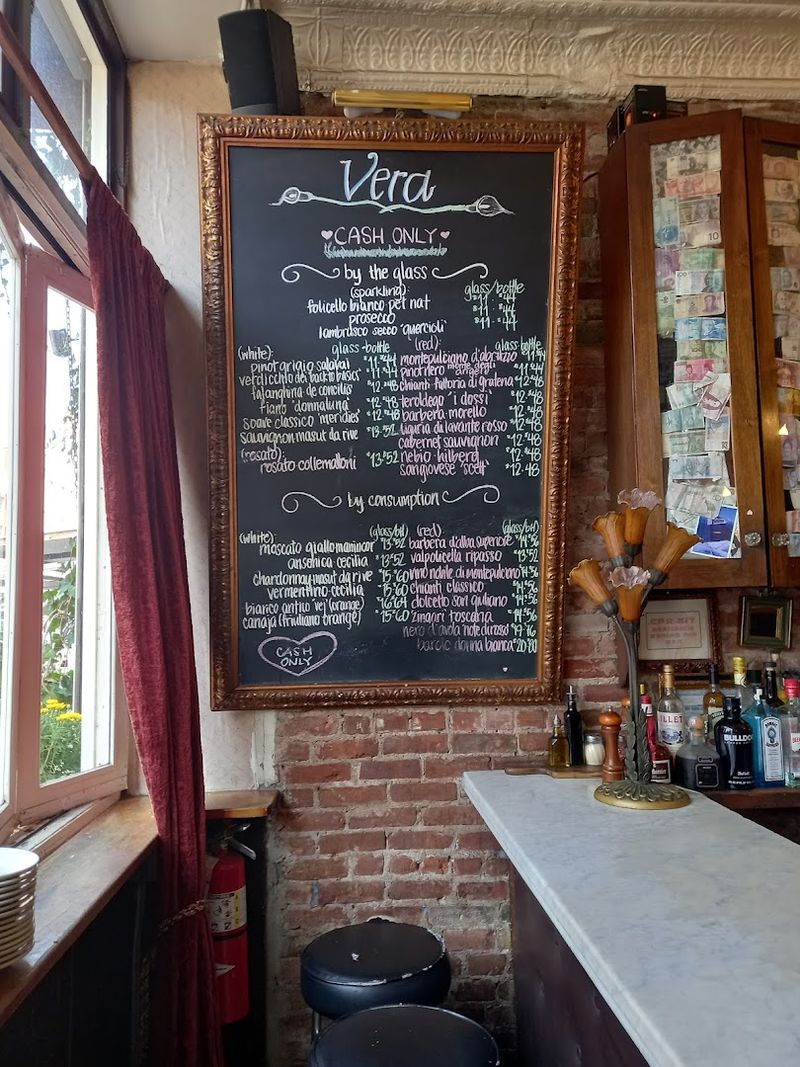 Vera
CASH ONLY
by the glass
(sparkling)
glass/bottle
folicello bianco pet nat $11 - $44
prosecco $11 - $44
lambrusco secco "quercioli" $11 - $44
(white): glass-bottle
pinot grigio $11 $44
verdicchio dei $11 $44
falanghina de concilis $12 $48
fiano "donnaluna" $12 $48
soave classico $12 $48
sauvignon masut da rive $13 $52
(rosato):
rosato collemattoni $13 $52
(red): glass-bottle
montepulciano d'abruzzo $11 $44
pinot nero $11 $44
chianti fattoria di $12 $48
teroldego "i dossi" $12 $48
barbera morello $12 $48
rosso $12 $48
cabernet sauvignon $12 $48
nebio hilberg $12 $48
sangiovese $12-48
by consumption
(white) (glass/btl)
moscato giallo $13 $52
ansonica cecilia $13 $52
chardonnay masut da rive $15 $60
vermentino cecilia $15 $60
bianco antico "vej" (orange) $16 $64
(friuliano orange) $15 $60
(red) (glass/btl)
barbera d'alba superiore $14 $56
valpolicella ripasso $13 $52
vino nobile di montepulciano $14 $56
chianti classico $14 $56
dolcetto san giuliano $14 $56
zingari toscana $14 $56
nero d'avola "note di rosso" $19 $76
barolo donna bianca $20 $80
CASH
ONLY
10
LILLET
BULLDOG